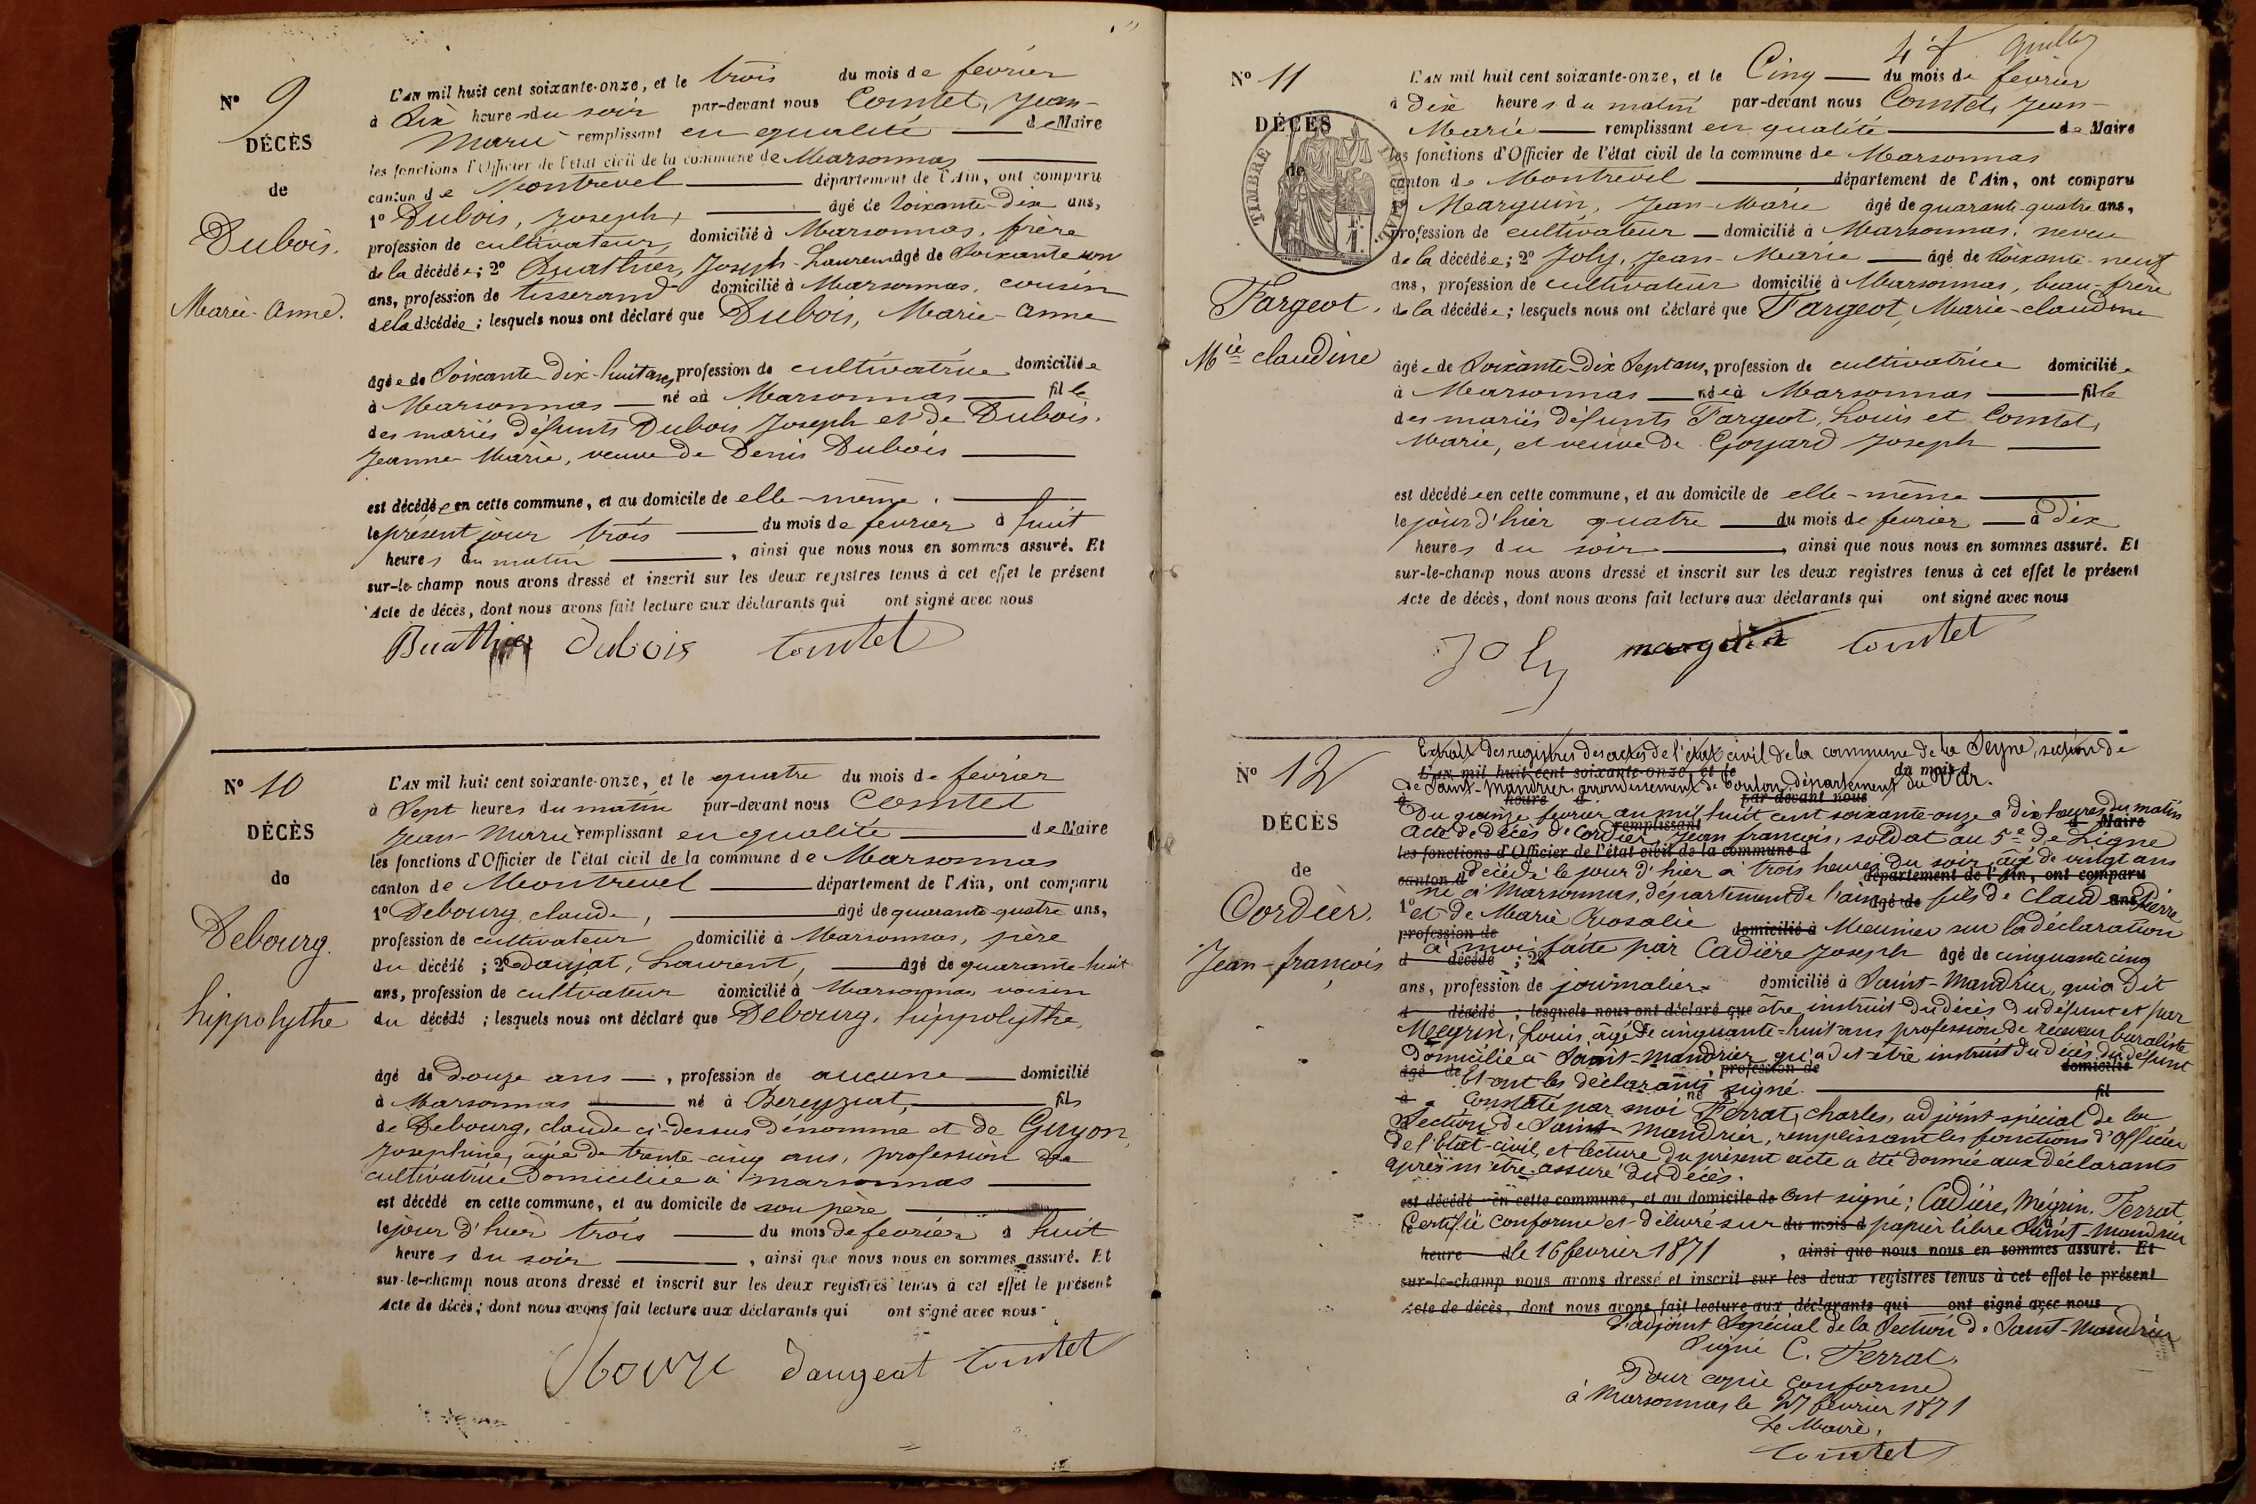 Nº 9
DÉCÈS
de
Dubois.
Marie-Anne.
L'AN mil huit cent soixante-onze, et le trois du mois de février
à Six heures du soir par-devant nous Comtet, Jean-
Marie remplissant en qualité de Maire
les fonctions d'Officier de l'état civil de la commune de Marsonnas
canton de Montrevel département de l'Ain, ont comparu
1º Dubois, Joseph, âgé de Soixante-Dix ans,
profession de cultivateur, domicilié à Marsonnas, frère
de la décédée; 2º Buathier, Joseph-Laurent âgé de Soixante un
ans, profession de tisserand domicilié à Marsonnas, cousin
de la décédée; lesquels nous ont déclaré que Dubois, Marie-Anne
âgée de Soixante-Dix-huit ans, profession de cultivatrice domiciliée
à Marsonnas née à Marsonnas fille
des mariés défunts Dubois Joseph et de Dubois
Jeanne Marie, veuve de Denis Dubois
est décédée en cette commune, et au domicile de elle-même.
le présent jour trois du mois de février à huit
heures du matin, ainsi que nous nous en sommes assuré. Et
sur-le-champ nous avons dressé et inscrit sur les deux registres tenus à cet effet le présent
Acte de décès, dont nous avons fait lecture aux déclarants qui ont signé avec nous
Buathier Dubois Comtet
Nº 10
DÉCÈS
de
Debourg.
hippolythe
L'AN mil huit cent soixante-onze, et le quatre du mois de février
à Sept heures du matin par-devant nous Comtet
Jean-Marie remplissant en qualité de Maire
les fonctions d'Officier de l'état civil de la commune de Marsonnas
canton de Montrevel département de l'Ain, ont comparu
1º Debourg claude, âgé de quarante-quatre ans,
profession de cultivateur domicilié à Marsonnas, père
du décédé; 2º Daujat, Laurent, âgé de quarante-huit
ans, profession de cultivateur domicilié à Marsonnas, voisin
du décédé; lesquels nous ont déclaré que Debourg, hippolythe,
âgé de Douze ans, profession de aucune domicilié
à Marsonnas né à Bereyziat, fils
de Debourg, claude ci-dessus dénommé et de Guyon,
Josephine, âgée de trente-cinq ans, profession de
cultivatrice domiciliée à Marsonnas
est décédé en cette commune, et au domicile de son père
le jour d'hier trois du mois de février à huit
heures du soir, ainsi que nous nous en sommes assuré. Et
sur-le-champ nous avons dressé et inscrit sur les deux registres tenus à cet effet le présent
Acte de décès; dont nous avons fait lecture aux déclarants qui ont signé avec nous
Daugeat Comtet
Nº 11
DÉCÈS
de
TIMBRE
Fargeot.
Mie claudine
L'AN mil huit cent soixante-onze, et le Cinq du mois de février
à Dix heures du matin par-devant nous Comtet, Jean-
Marie remplissant en qualité de Maire
les fonctions d'Officier de l'état civil de la commune de Marsonnas
canton de Montrevel département de l'Ain, ont comparu
Marguin, Jean-Marie âgé de quarante-quatre ans,
profession de cultivateur domicilié à Marsonnas, neveu
de la décédée; 2º Joly, Jean-Marie âgé de Soixante-neuf
ans, profession de cultivateur domicilié à Marsonnas, beau-frère
de la décédée; lesquels nous ont déclaré que Fargeot, Marie-claudine
âgée de Soixante-Dix Sept ans, profession de cultivatrice domiciliée
à Marsonnas née à Marsonnas fille
des mariés défunts Fargeot, Louis et Comtet,
Marie, et veuve de Goyard Joseph
est décédée en cette commune, et au domicile de elle-même
le jour d'hier quatre du mois de février à Dix
heures du soir, ainsi que nous nous en sommes assuré. Et
sur-le-champ nous avons dressé et inscrit sur les deux registres tenus à cet effet le présent
Acte de décès, dont nous avons fait lecture aux déclarants qui ont signé avec nous
Joly marguin Comtet
Nº 12
DÉCÈS
de
Cordier.
Jean-françois
Extrait des registres des actes de l'état civil de la commune de la Seyne, section de
L'AN mil huit cent soixante-onze, et le du mois d
de Saint-Mandrier arrondissement de Toulon, département du Var.
à heure d par-devant nous
Du quinze fevrier an mil huit cent soixante-onze à dix heures du matin
remplissant d Maire
Acte de décès de Cordier, Jean françois, soldat au 5e de Ligne
les fonctions d'Officier de l'état civil de la commune d
décédé le jour d'hier à trois heures du soir, âgé de vingt ans
canton d département de l'Ain, ont comparu
né à Marsonnas, département de l'ain fils de Claude Pierre
1º âgé de ans
et de Marie Rosalie Meunier sur la déclaration
profession de domicilié à
à moi faite par Cadière Joseph âgé de cinquante cinq
d décédé; 2º
ans, profession de journalier domicilié à Saint-Mandrier, qui a dit
d décédé; lesquels nous ont déclaré que être instruit du décès du défunt et par
Megrin, Louis, âgé de cinquante-huit ans profession de receveur buraliste
domicilié à Saint-Mandrier qui a dit être instruit du décès du défunt
âgé de, profession de domicilié
Et ont les déclarants signé.
à né fil
Constaté par moi Ferrat, Charles, adjoint spécial de la
Section de Saint-Mandrier, remplissant les fonctions d'officier
de l'état-civil, et lecture du présent acte a été donnée aux déclarants
après m'être assuré du décès.
est décédé en cette commune, et au domicile de Ont signé; Cadière, Mégrin, Ferrat
Certifié conforme et délivré sur du mois d papier libre à Saint-Mandrier
heure d le 16 fevrier 1871, ainsi que nous nous en sommes assuré. Et
sur-le-champ nous avons dressé et inscrit sur les deux registres tenus à cet effet le présent
Acte de décès, dont nous avons fait lecture aux déclarants qui ont signé avec nous
L'adjoint Spécial de la Section de Saint-Mandrier
Signé C. Ferrat.
Pour copie conforme
à Marsonnas le 27 février 1871
Le Maire,
Comtet